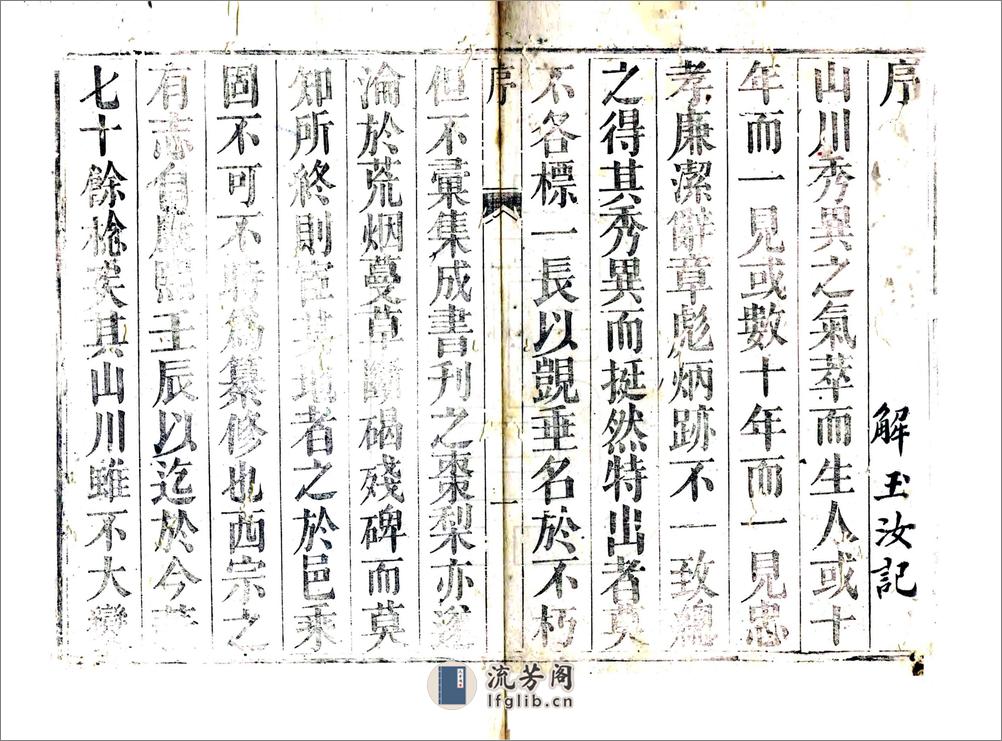 序
解玉汝記
山川秀異之氣萃而生人或十
年而一見或數十年而一見忠
孝廉潔辭章彪炳跡不一致總
之得其秀異而挺然特出者莫
不各標一長以覬垂名於不朽
序
一
但不彙集成書刊之棗梨亦遂
淪於荒烟蔓草斷碣殘碑而莫
知所終則官其地者之於邑乘
固不可不時為纂修也西宗之
有志自康熙壬辰以迄於今
七十餘稔矣其山川雖不大變
流芳阁
lfglib.cn